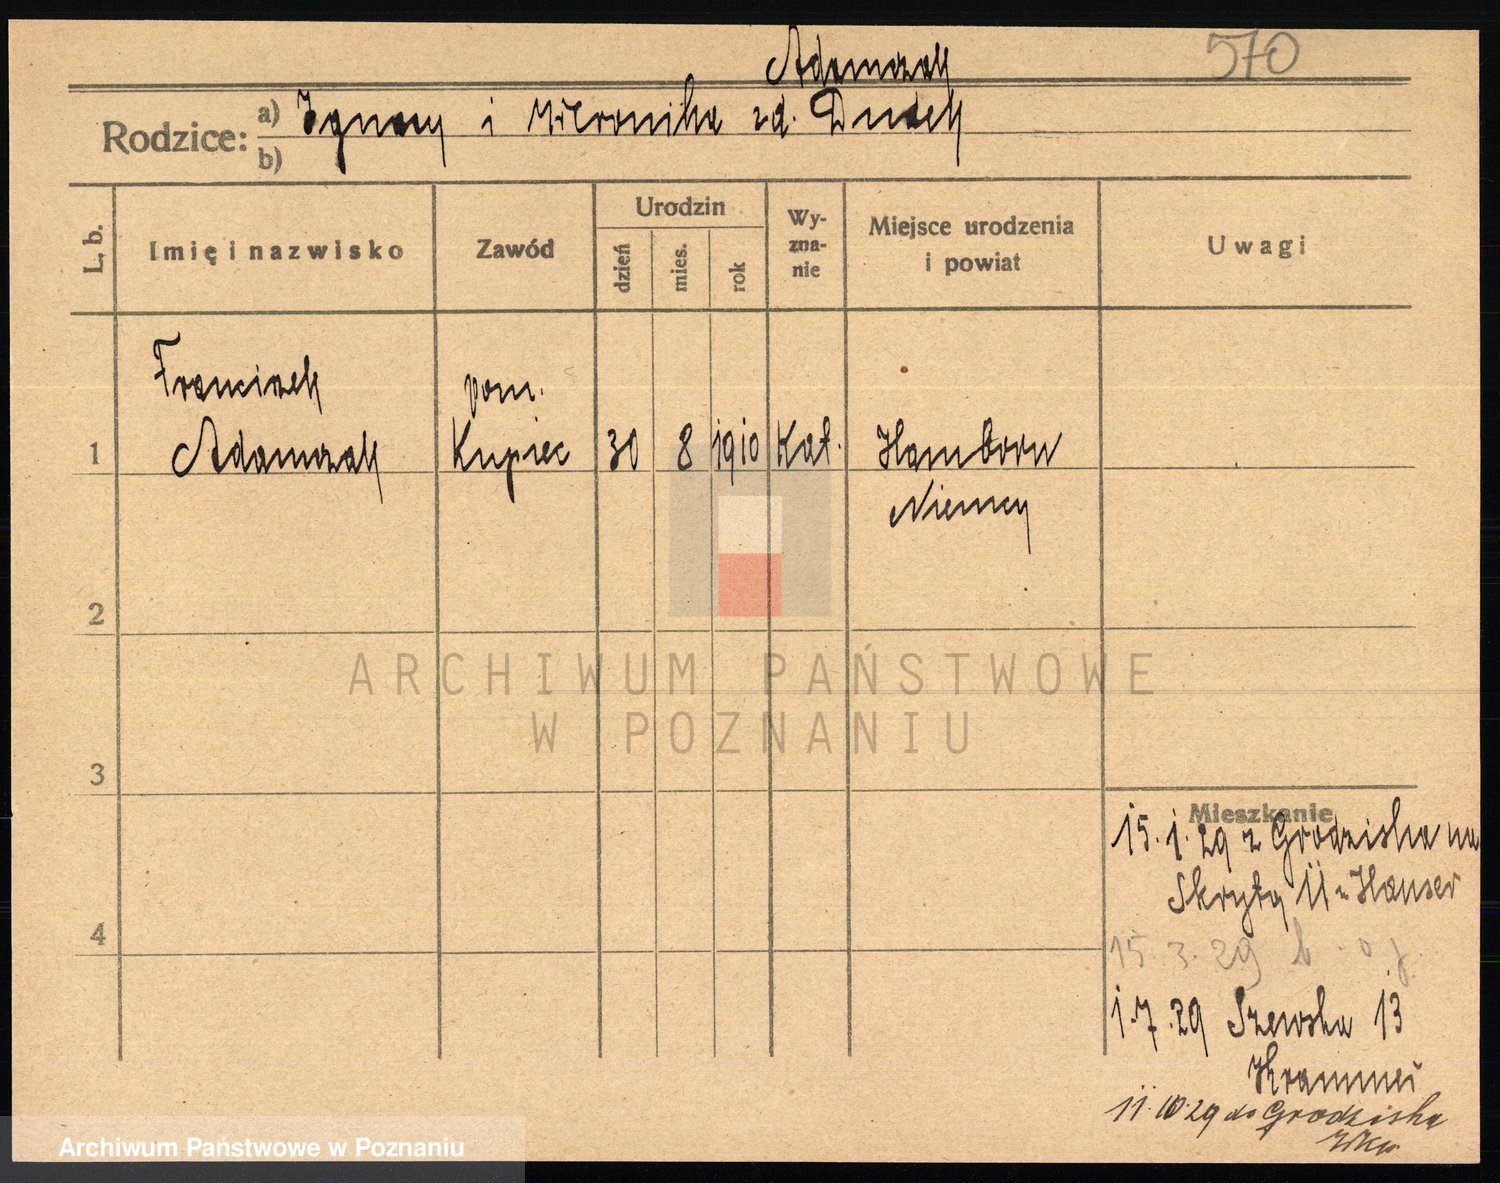 Adamczak
570
Rodzice: a) Ignacy i Weronika zd. Dudek
b)
L. b.
Imię i nazwisko
Zawód
Urodzin
dzień
mies.
rok
Wy-
zna-
nie
Miejsce urodzenia
i powiat
Uwagi
Franciszek pom.
1 Adamczak Kupiec 30 8 1910 Kat. Hamborn
Niemcy
2
ARCHIWUM PAŃSTWOWE
W POZNANIU
3
Mieszkanie
15.1.29 z Grodziska na
Skrytą 11 u Hauser
4
15.3.29
1.7.29 Szewska 13
11.10.29 do Grodziska
Archiwum Państwowe w Poznaniu